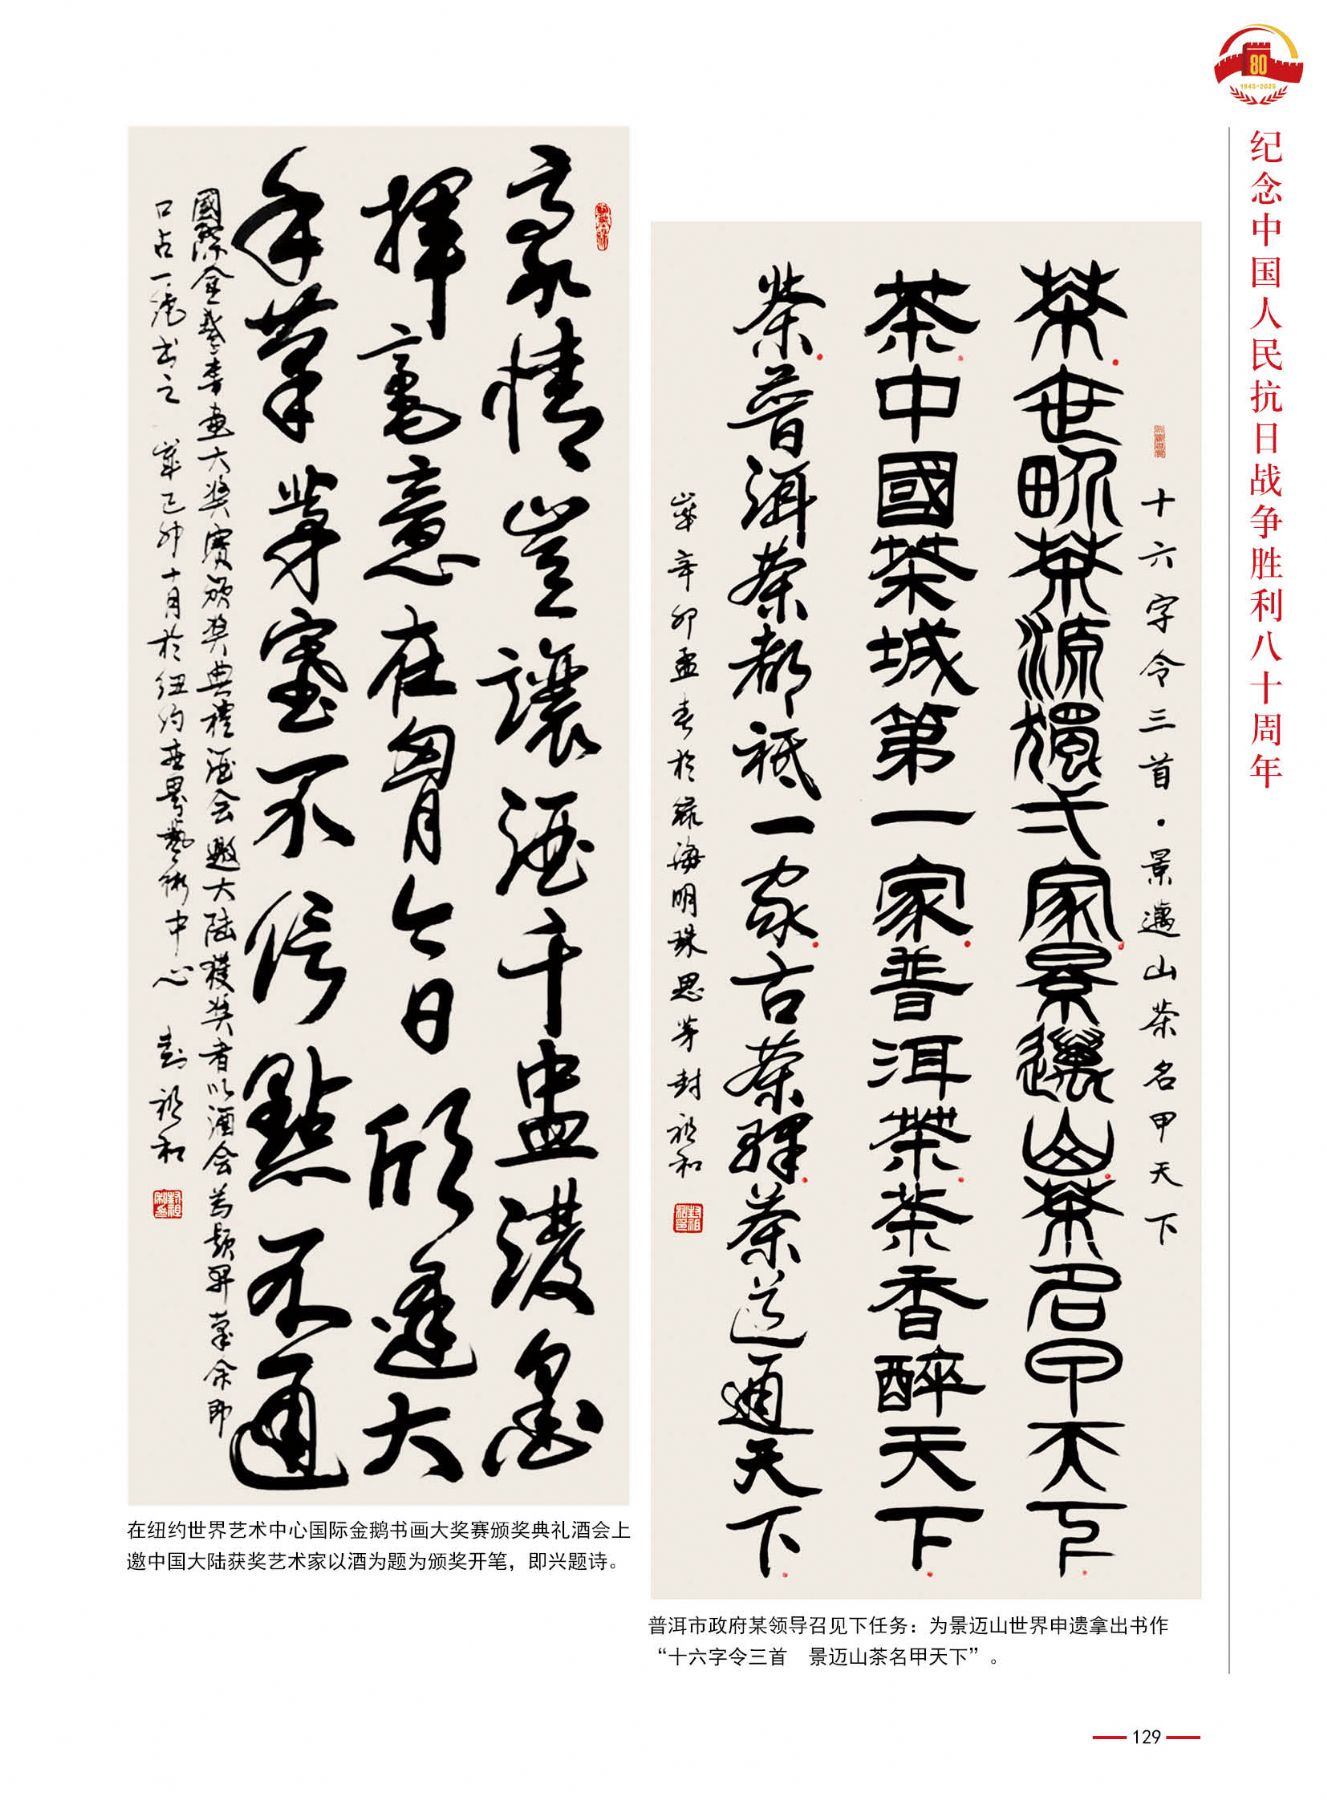 80
1945-2025
纪念中国人民抗日战争胜利八十周年
豪情豈讓酒千盅潑墨
揮毫意在胸今日欣逢大
手筆茅塞不信點不通
國際金鵝書畫大獎賽頒獎典禮酒会邀大陆獲獎者以酒会為題开筆余即
口占一绝书之 歲己卯十月於纽约世界藝術中心 封祖和
在纽约世界艺术中心国际金鹅书画大奖赛颁奖典礼酒会上
邀中国大陆获奖艺术家以酒为题为颁奖开笔，即兴题诗。
十六字令三首·景邁山茶名甲天下
茶世畍茶源獨弌家景邁山茶名甲天下
茶中國茶城第一家普洱茶茶香醉天下
茶普洱茶都祗一家古茶驛茶道通天下
歲辛卯孟春於緑海明珠思茅封祖和
普洱市政府某领导召见下任务：为景迈山世界申遗拿出书作
“十六字令三首　景迈山茶名甲天下”。
129